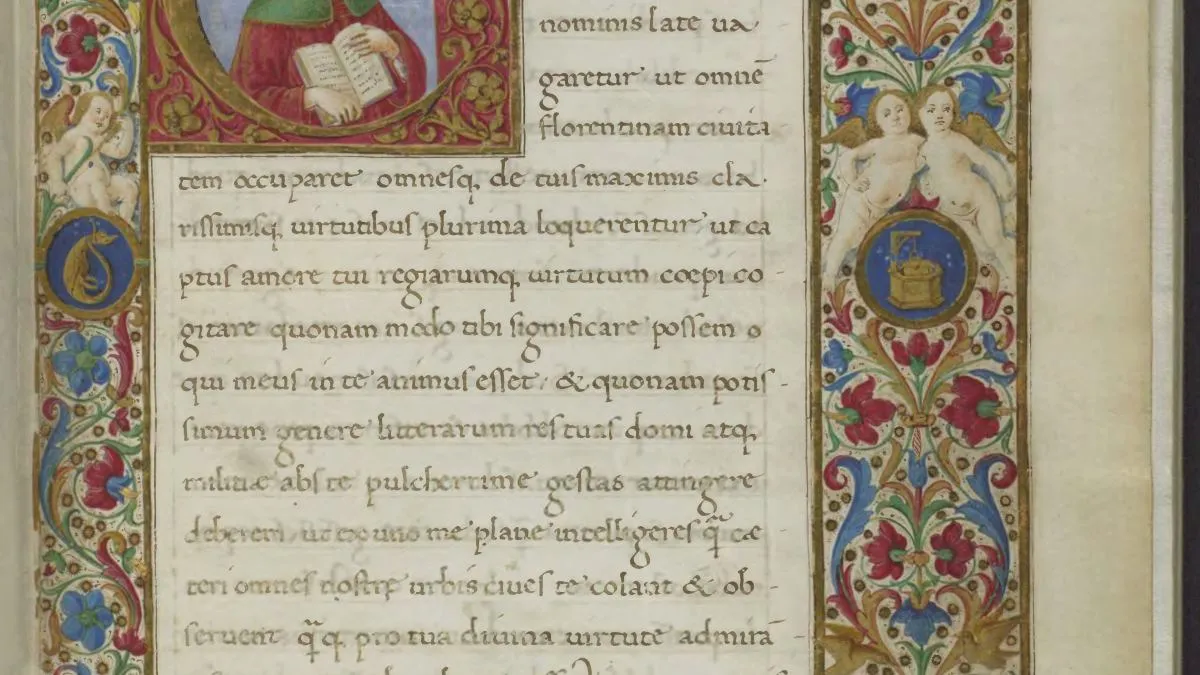 nominis late ua
garetur ut omnē
florentinam ciuita
tem occuparet omnesq, de tuis maximis cla.
rissimisq, uirtutibus plurima loquerentur, ut ca
ptus amore tui regiarumq, uirtutum coepi co-
gitare quonam modo tibi significare possem o
qui meus in te animus esset, & quonam potis-
simum genere litterarum res tuas domi atq,
militiæ abs te pulcherrime gestas attingere
deberem, ut ex uno me plane intelligeres q̄ cæ
teri omnes nostrę urbis ciues te colant & ob-
seruent q̄q, pro tua diuina uirtute admirā-